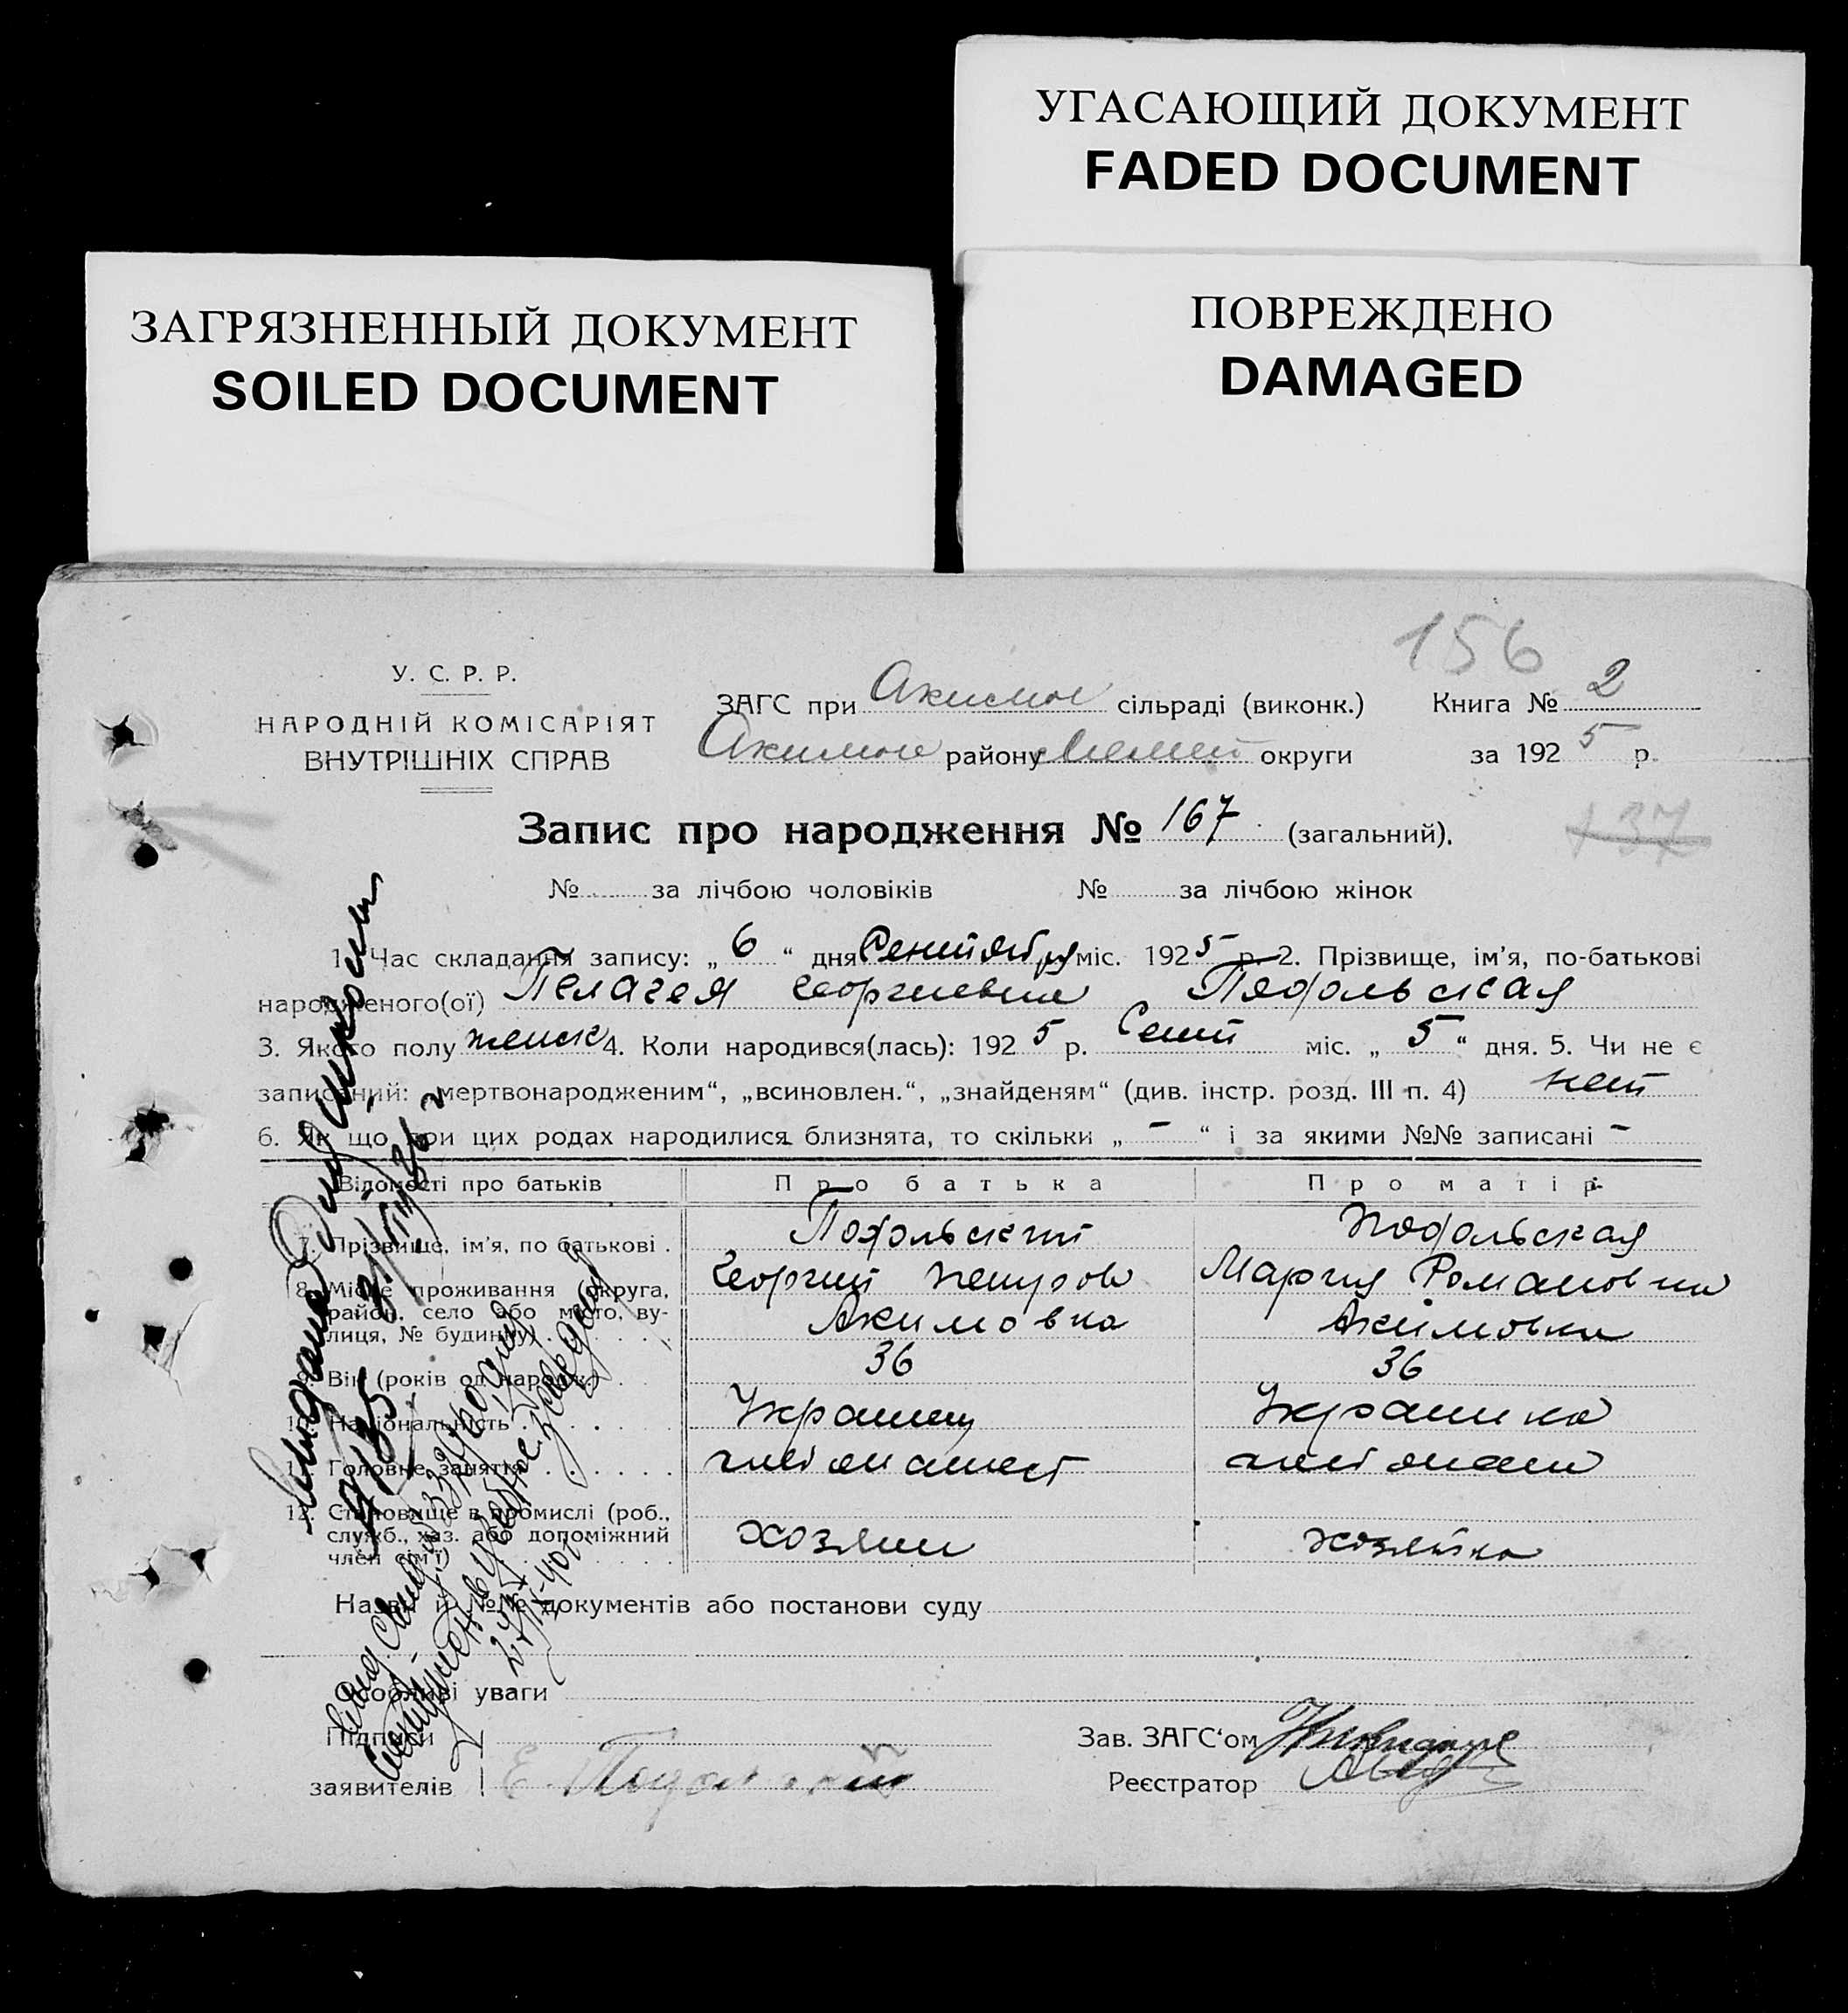 УГАСАЮЩИЙ ДОКУМЕНТ
FADED DOCUMENT
ЗАГРЯЗНЕННЫЙ ДОКУМЕНТ
SOILED DOCUMENT
ПОВРЕЖДЕНО
DAMAGED
156
У. С. Р. Р.
НАРОДНІЙ КОМІСАРІЯТ
ВНУТРІШНІХ СПРАВ
ЗАГС при Акимов сільраді (виконк.) Книга № 2
Акимов району Мелит округи за 1925 р.
Запис про народження № 167 (загальний).
137
№ за лічбою чоловіків № за лічбою жінок
1. Час складання запису: „ 6 “ дня Сентября міс. 1925 р. 2. Прізвище, ім'я, по-батькові
народженого(ої) Пелагея Георгиевна Подольская
3. Якого полу женск 4. Коли народився(лась): 1925 р. Сент міс. „ 5 “ дня. 5. Чи не є
записаний: „мертвонародженим“, „всиновлен.“, „знайденям“ (див. інстр. розд. III п. 4) нет
6. Як що при цих родах народилися близнята, то скільки „ - “ і за якими №№ записані -
Відомості про батьків Про батька Про матір
7. Прізвище, ім'я, по батькові . Подольский Подольская
8. Місце проживання (округа, Георгий Мария Романовна
район, село або місто, ву-
лиця, № будинку) Акимовка Акимовка
9. Вік (років од народж.) 36 36
10. Національність Украинец Украинка
11. Головне заняття
12. Становище в промислі (роб.,
служб., хаз. або допоміжний хозяин хозяйка
член сім'ї)
Назви й №№ документів або постанови суду
Особливі уваги
Підписи
заявителів Е. Подольский
Зав. ЗАГС'ом
Реєстратор